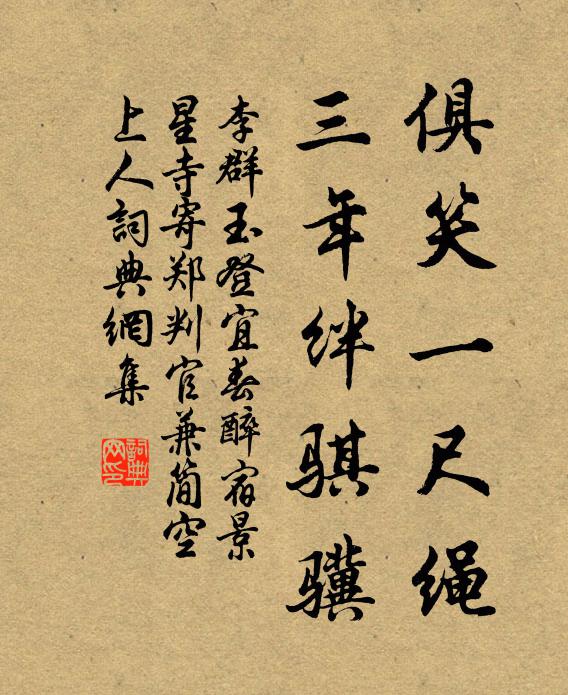 俱笑一尺绳
三年绊骐骥
李群玉登宜春醉宿景
星寺寄郑判官兼简空
上人詞典網集
詞典网印